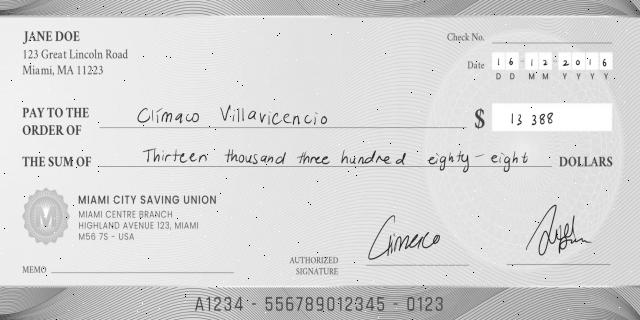 JANE DOE
123 Great Lincoln Road
Miami, MA 11223
Check No.
Date 16 12 2016
D D M M Y Y Y Y
PAY TO THE
ORDER OF Clímaco Villavicencio $ 13 388
THE SUM OF Thirteen thousand three hundred eighty-eight DOLLARS
MIAMI CITY SAVING UNION
MIAMI CENTRE BRANCH
HIGHLAND AVENUE 123, MIAMI
M56 7S - USA
MEMO
AUTHORIZED
SIGNATURE
A1234 - 556789012345 - 0123